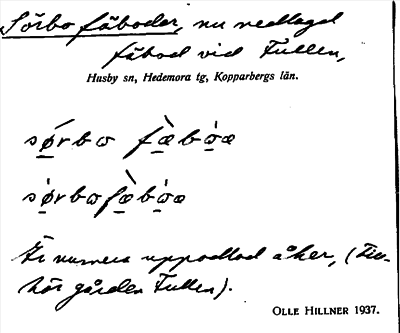 Sörbo fäbodar, nu nedlagd
fäbod vid Fullen,
Husby sn, Hedemora tg, Kopparbergs län.
sørbω fæbωæ
sørbωfæbωæ
Är numera uppodlad åker, (Till-
hör gården Fullen).
OLLE HILLNER 1937.